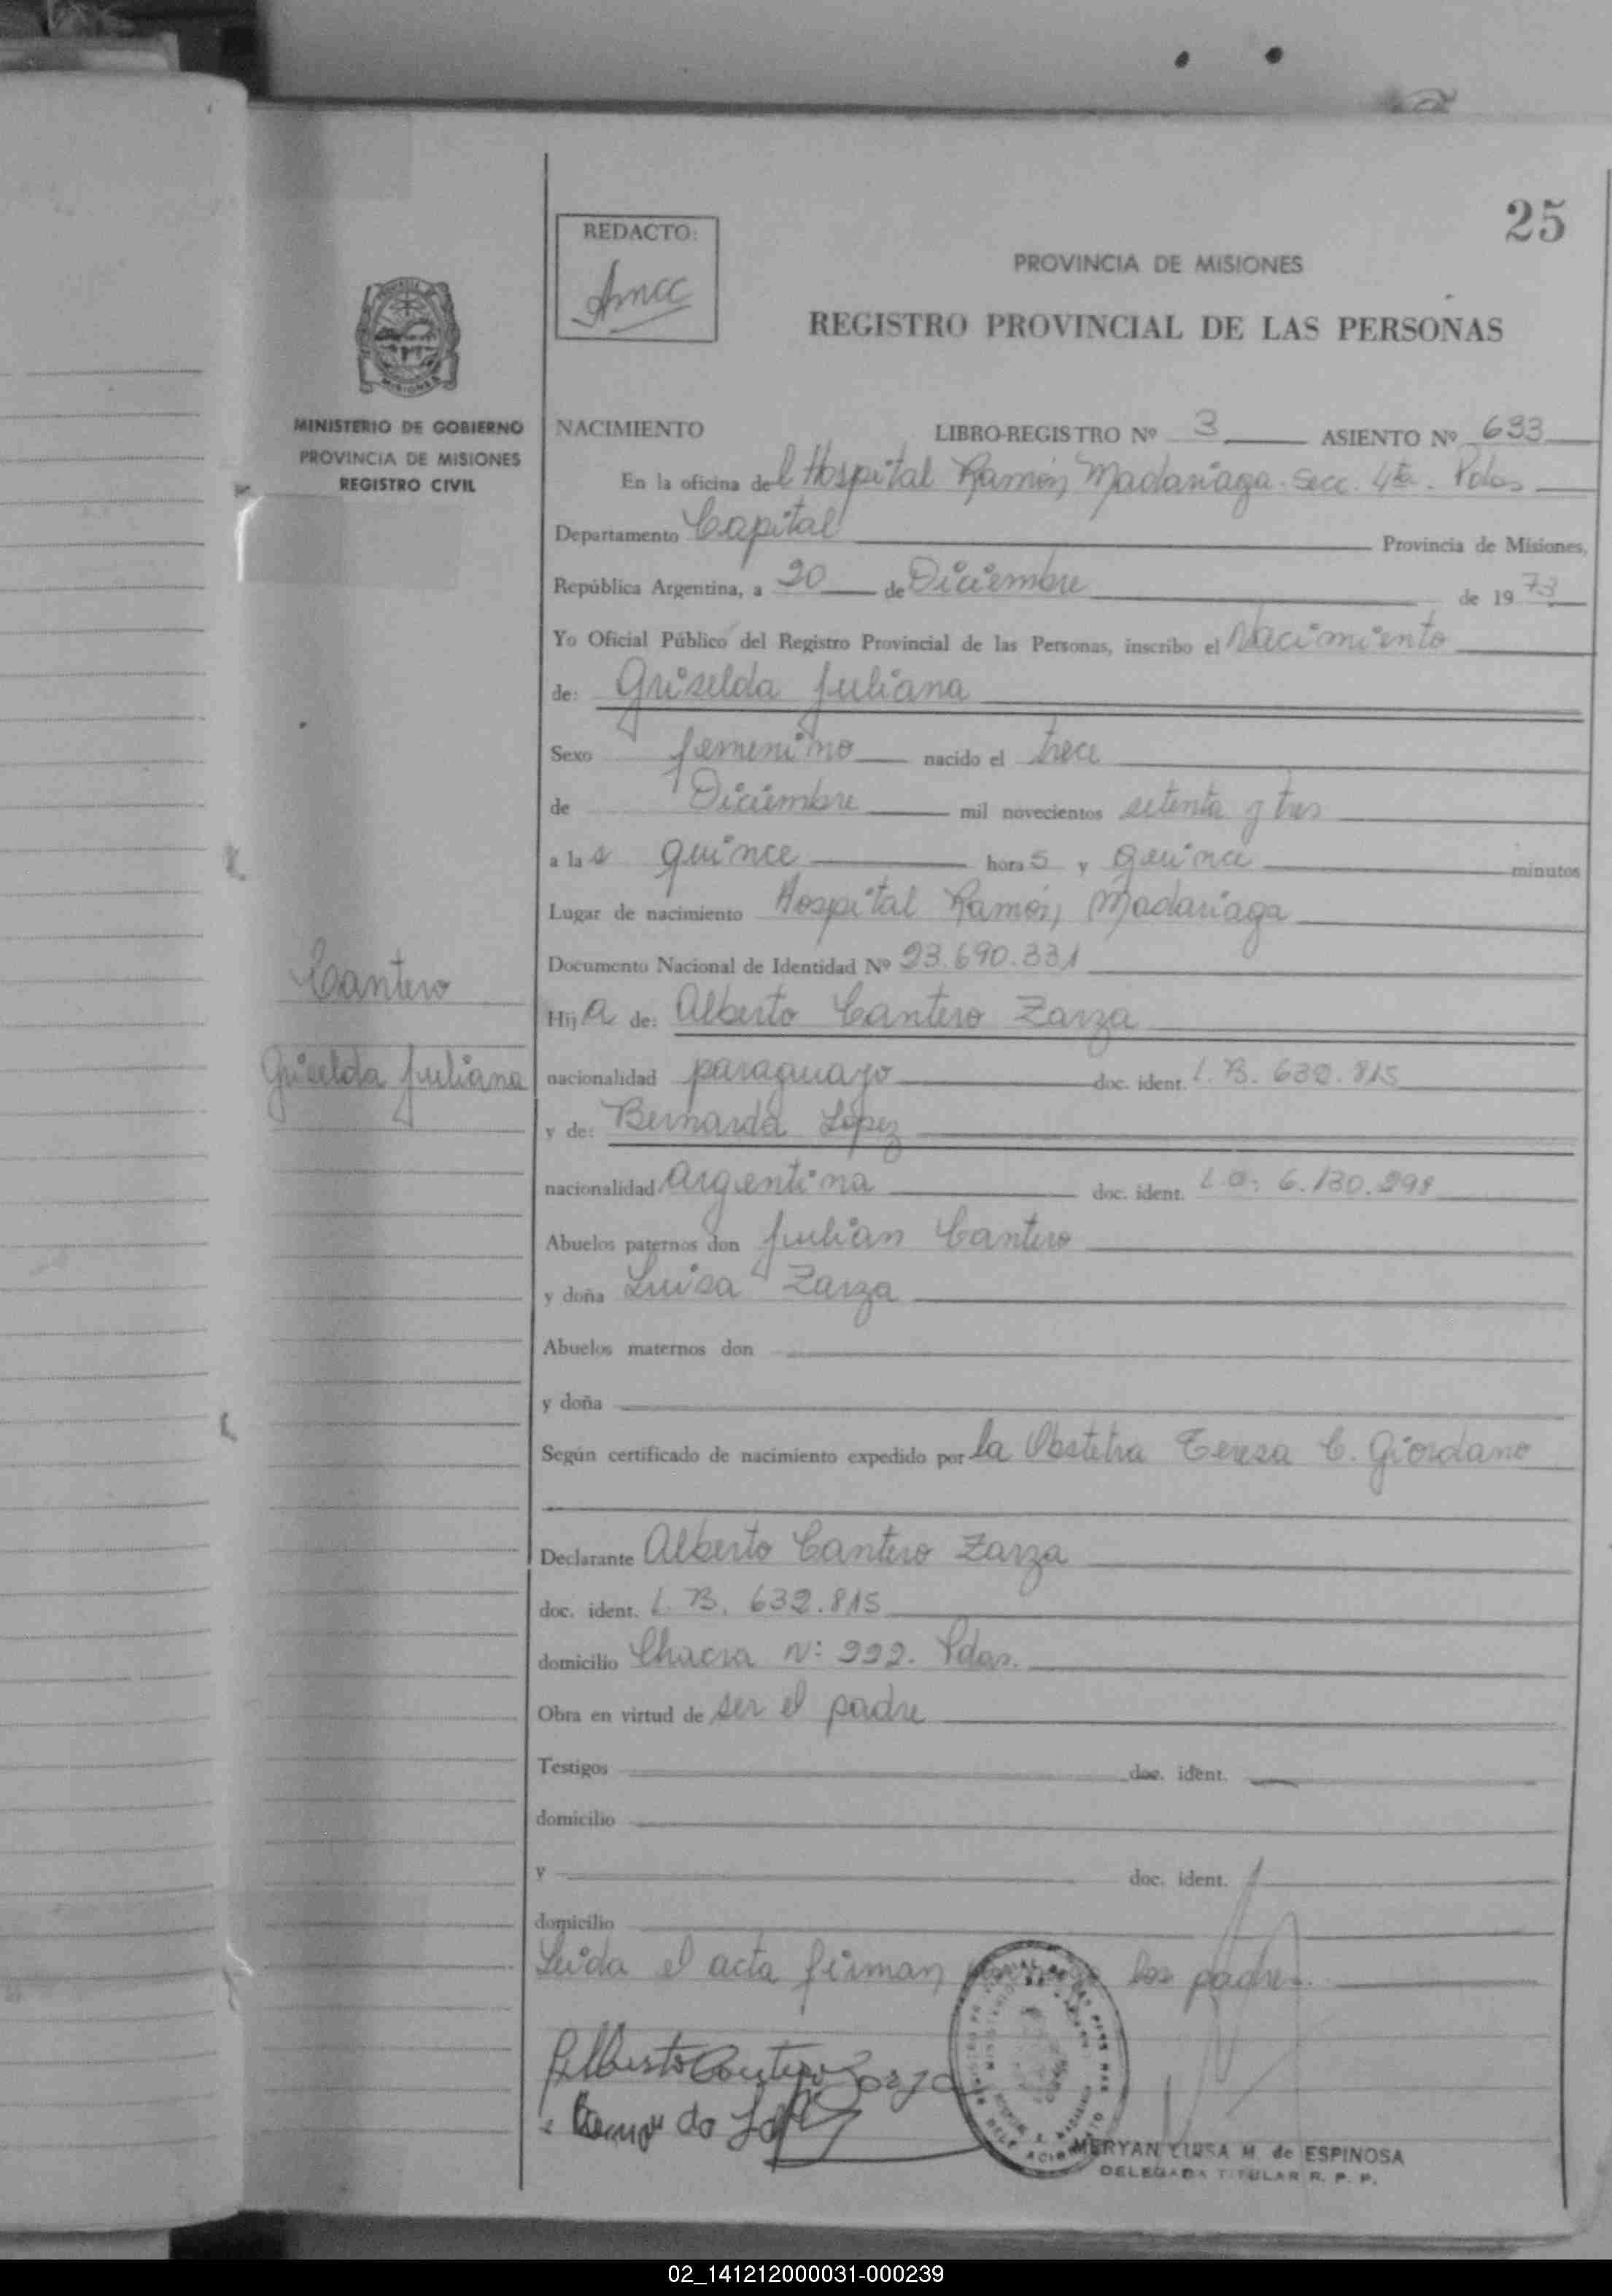 25
REDACTO:
Amcc
PROVINCIA DE MISIONES
REGISTRO PROVINCIAL DE LAS PERSONAS
MISIONES
MINISTERIO DE GOBIERNO
PROVINCIA DE MISIONES
REGISTRO CIVIL
NACIMIENTO LIBRO-REGISTRO Nº 3 ASIENTO Nº 633
En la oficina del Hospital Ramón Madariaga. Secc. 4ta. Pdas
Departamento Capital Provincia de Misiones,
República Argentina, a 20 de Diciembre de 1973
Yo Oficial Público del Registro Provincial de las Personas, inscribo el Nacimiento
de: Griselda Juliana
Sexo femenino nacido el trece
de Diciembre mil novecientos setenta y tres
a las quince horas y quince minutos
Lugar de nacimiento Hospital Ramón Madariaga
Documento Nacional de Identidad Nº 23.690.331
Cantero
Hija de: Alberto Cantero Zarza
Griselda Juliana
nacionalidad paraguayo doc. ident. 632.815
y de: Bernarda López
nacionalidad argentina doc. ident. 6.130.298
Abuelos paternos don Julian Cantero
y doña Luisa Zarza
Abuelos maternos don
y doña
Según certificado de nacimiento expedido por la Obstetra Teresa C. Giordano
Declarante Alberto Cantero Zarza
doc. ident. 632.815
domicilio Chacra Nº 222. Pdas.
Obra en virtud de ser el padre
Testigos doc. ident.
domicilio
y doc. ident.
domicilio
Leida el acta firman los padres.
Alberto Cantero Zarza
Bernarda López
MERYAN LUISA M. de ESPINOSA
DELEGADA TITULAR R. P. P.
02_141212000031-000239